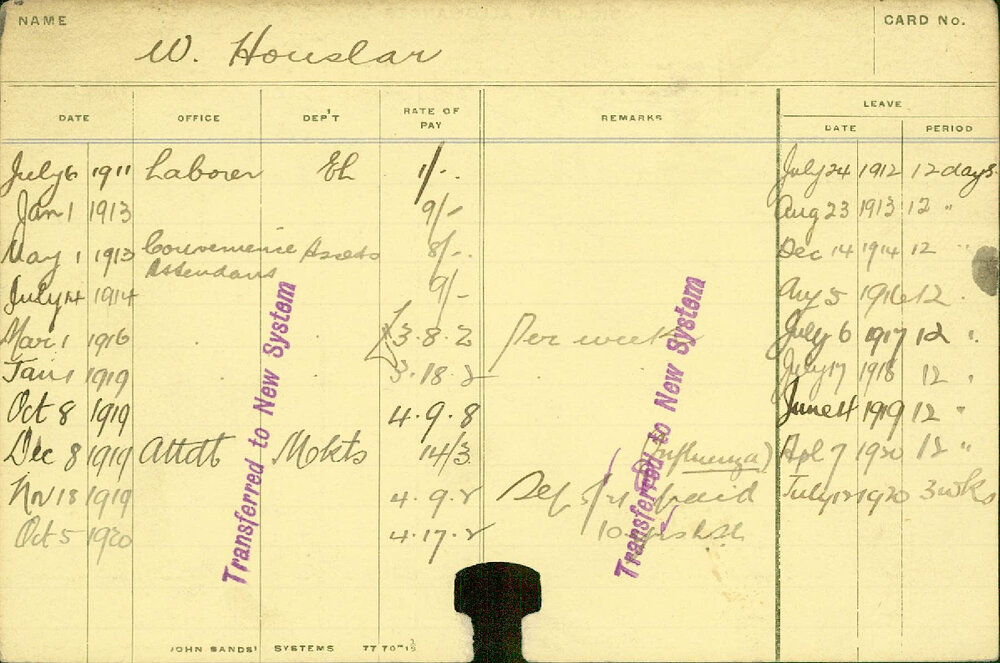 NAME
CARD No.
W. Houslar
DATE OFFICE DEP'T RATE OF PAY REMARKS LEAVE
DATE PERIOD
July 6 1911 Laborer EL 1/-. July 24 1912 12 days
Jan 1 1913 9/- Aug 23 1913 12 "
May 1 1913 Convenience Assets 8/-. Dec 14 1914 12 "
Attendant
July 14 1914 9/- Aug 5 1916 12 "
Mar 1 1916 3.8.2 Per week July 6 1917 12 "
Jan 1 1919 3.18.2 July 17 1918 12 "
Oct 8 1919 4.9.8 June 4 1919 12 "
Dec 8 1919 Attdt Mkts 14/3 (Influenza) Apl 7 1920 12 "
Nov 18 1919 4.9.2 paid July 12 1920 3 wks
Oct 5 1920 4.17.2 10
Transferred to New System
Transferred to New System
JOHN SANDS' SYSTEMS